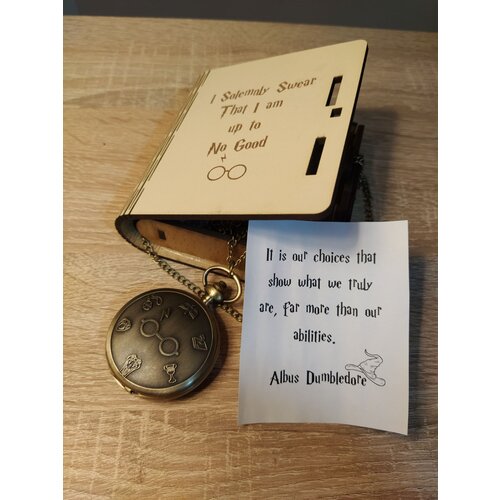 I Solemnly Swear
That I am
up to
No Good
It is our choices that
show what we truly
are, far more than our
abilities.
Albus Dumbledore